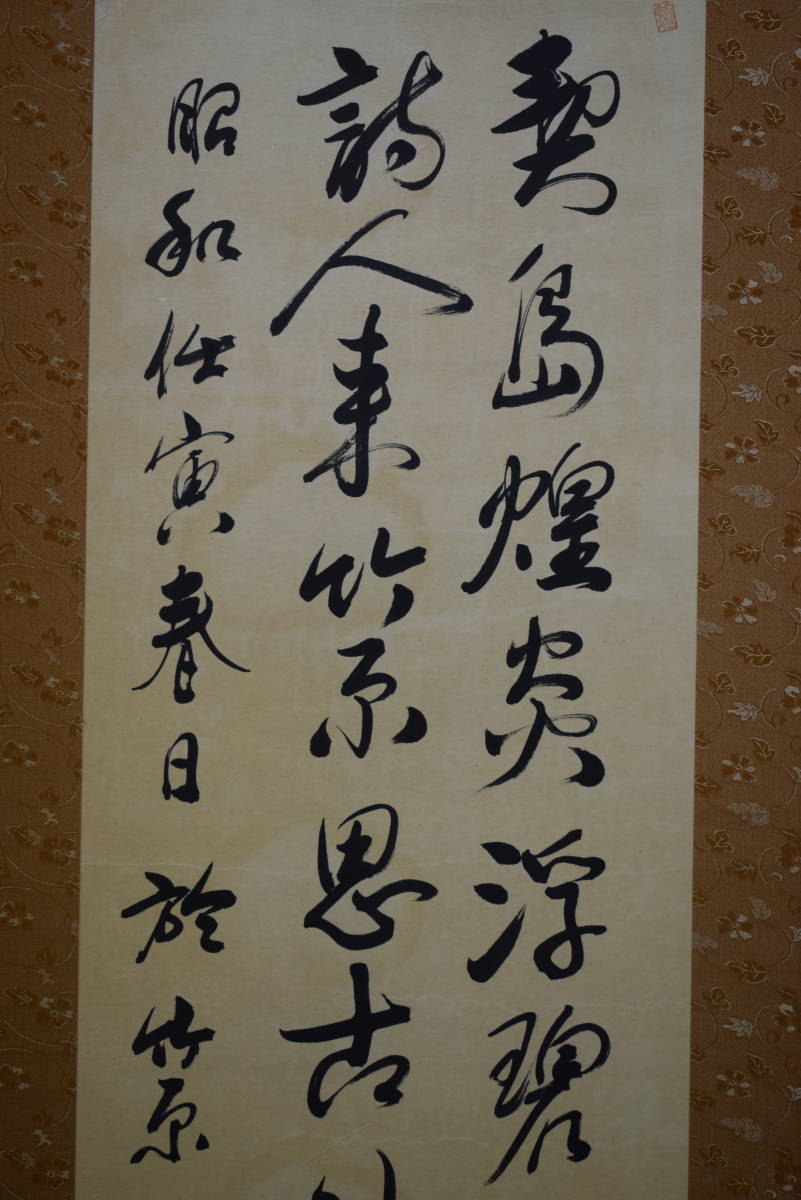 契島煌炎浮碧
詩人来竹原思古
昭和仕寅春日於竹原